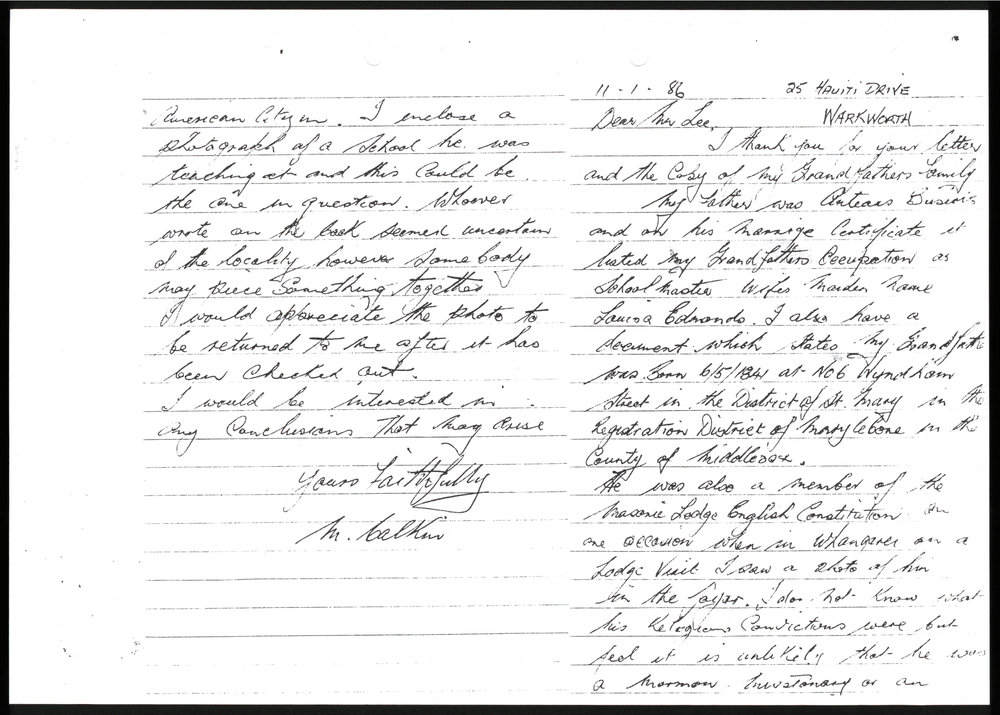 11-1-86 25 HAUITI DRIVE
Dear Mr Lee, WARKWORTH
I thank you for your letter
and the Copy of my Grandfathers family
My father was
and on his marrige Certificate it
listed my Grandfathers Occupation as
School Master Wifes Maiden Name
Louisa Edmonds. I also have a
document which states my Grandfathe
was Born 6/5/1841 at No6 Wyndham
Street in the District of St. Mary in the
Registration District of Marylebone in the
County of Middlesex.
He was also a member of the
Masonic Lodge English Constitution. On
one occasion when in Whangarei on a
Lodge Visit I saw a photo of him
in the foyer. I do not know what
his Religious Convictions were but
feel it is unlikely that he was
a Mormon Missionary or an
American Citizen. I enclose a
photograph of a School he was
teaching at and this Could be
the one in question. Whoever
wrote on the back seemed uncertain
of the locality however Somebody
may piece Something together
I would appreciate the photo to
be returned to me after it has
been Checked out.
I would be interested in
any Conclusions that may arise
Yours Faithfully
M. Calkin